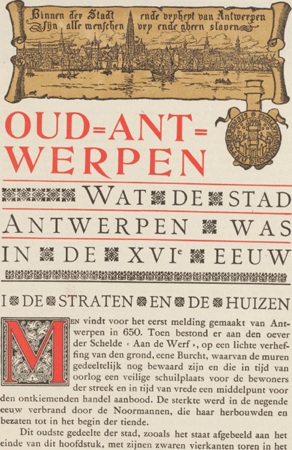 Binnen der Stadt ende vryheyt van Antwerpen
Syn alle menschen vry ende gheen slaven
OUD=ANT=
WERPEN
WAT DE STAD
ANTWERPEN WAS
IN DE XVIe EEUW
I DE STRATEN EN DE HUIZEN
MEN vindt voor het eerst melding gemaakt van Ant-
werpen in 650. Toen bestond er aan den oever
der Schelde « Aan de Werf », op een lichte verhef-
fing van den grond, eene Burcht, waarvan de muren
gedeeltelijk nog bewaard zijn en die in tijd van
oorlog een veilige schuilplaats voor de bewoners
der streek en in tijd van vrede een middelpunt voor
den ontkiemenden handel aanbood. De sterkte werd in de negende
eeuw verbrand door de Noormannen, die haar herbouwden en
bezaten tot in het begin der tiende.
Dit oudste gedeelte der stad, zooals het staat afgebeeld aan het
einde van dit hoofdstuk, met zijnen zwaren vierkanten toren in het